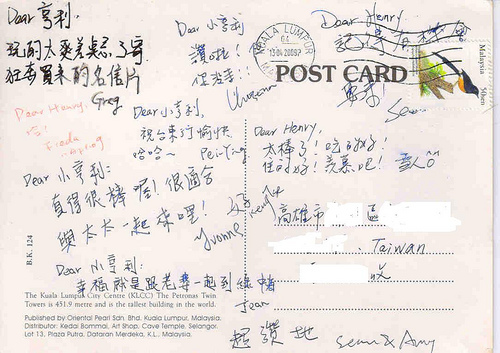 Dear 亨利,
玩的太爽差点忘了寄
在泰買来的名信片
Greg
Dear 小亨利
讚啦!
Dear Henry,
KUALA LUMPUR
POST CARD
Malaysia
50sen
Dear Henry,
Dear 小亨利,
祝台東行愉快
哈哈~ Pei-Ying
Dear Henry,
太棒了!吃的好!
住的好!羨慕吧!
Dear 小亨利:
真得很棒喔!很適合
與太太一起來喔!
Yvonne
高雄市 區
Taiwan
B.K. 124
Dear 小亨利:
幸福就是跟老婆一起到
Jean
The Kuala Lumpur City Centre (KLCC) The Petronas Twin
Towers is 451.9 metre and is the tallest building in the world.
Published by Oriental Pearl Sdn. Bhd. Kuala Lumpur, Malaysia.
Distributor: Kedai Bommai, Art Shop, Cave Temple, Selangor.
Lot 13, Plaza Putra, Dataran Merdeka, K.L., Malaysia.
超讚地
Sean & Amy